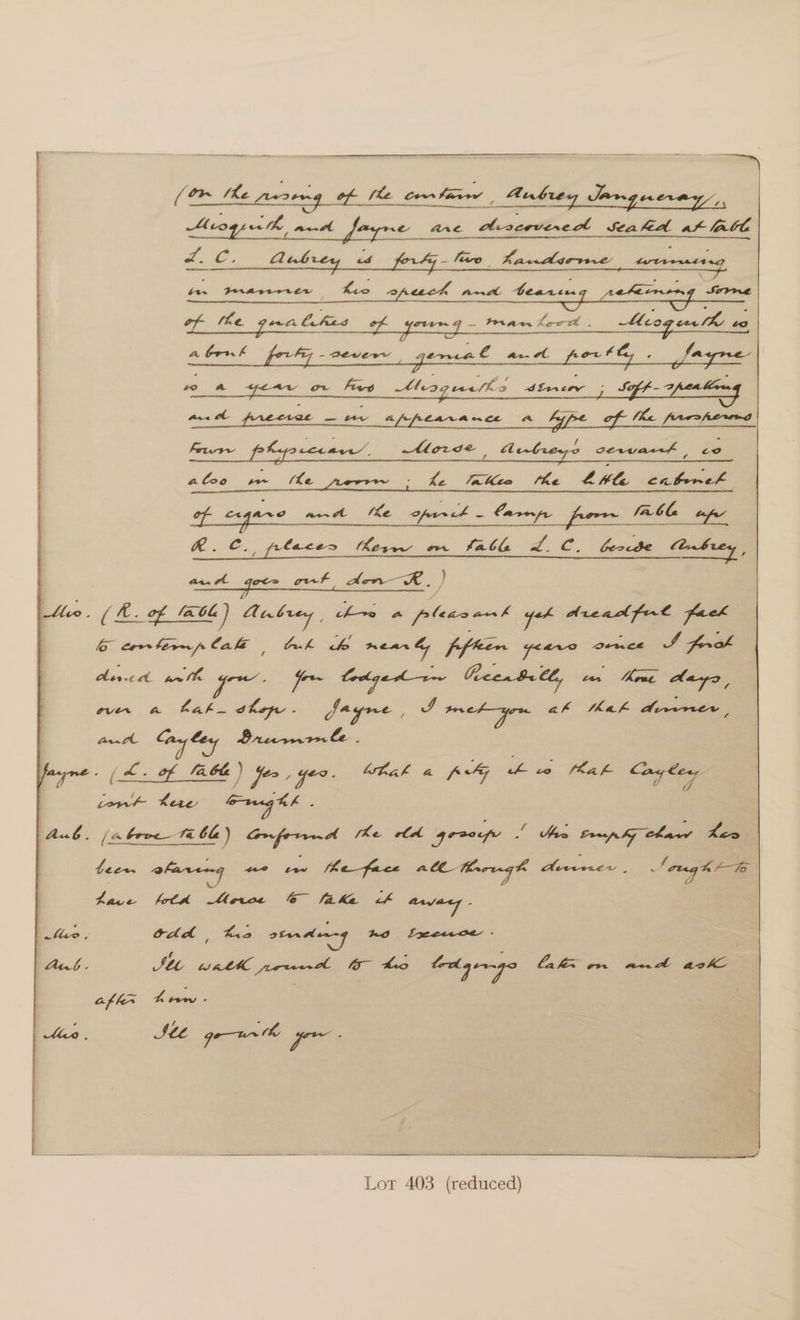 (On the rising of the curtain, Aubrey Tanqueray,,
Misquith, and Jayne are discovered seated at table
L. C. Aubrey is forty-two, handsome, winning
in manner, his speech and bearing retaining some
of the qualities of young-manhood. Misquith is
about forty-seven, genial and portly. Jayne
is a year or two Misquith's senior; soft-speaking
and precise – in appearance a type of the prosperous
town physician. Morse, Aubrey's servant, is
also in the room; he takes the little cabinet
of cigars and the spirit-lamp from table up
R. C., places them on table L. C. beside Aubrey,
and goes out, door R.)
Mis. (R. of table) Aubrey, it is a pleasant yet dreadful fact
to contemplate, but it's nearly fifteen years since I first
dined with you. You lodged in Piccadilly in those days,
over a hat-shop. Jayne, I met you at that dinner,
and Cayley Drummle.
Jayne. (L. of table) Yes, yes. What a pity it is that Cayley
isn't here tonight.
Aub. (above table) Confound the old gossip! His empty chair has
been staring us in the face all through dinner. I ought to
have told Morse to take it away.
Mis. Odd, his sending no excuse.
Aub. I'll walk round to his lodgings later on and ask
after him.
Mis. I'll go with you.
LOT 403 (reduced)